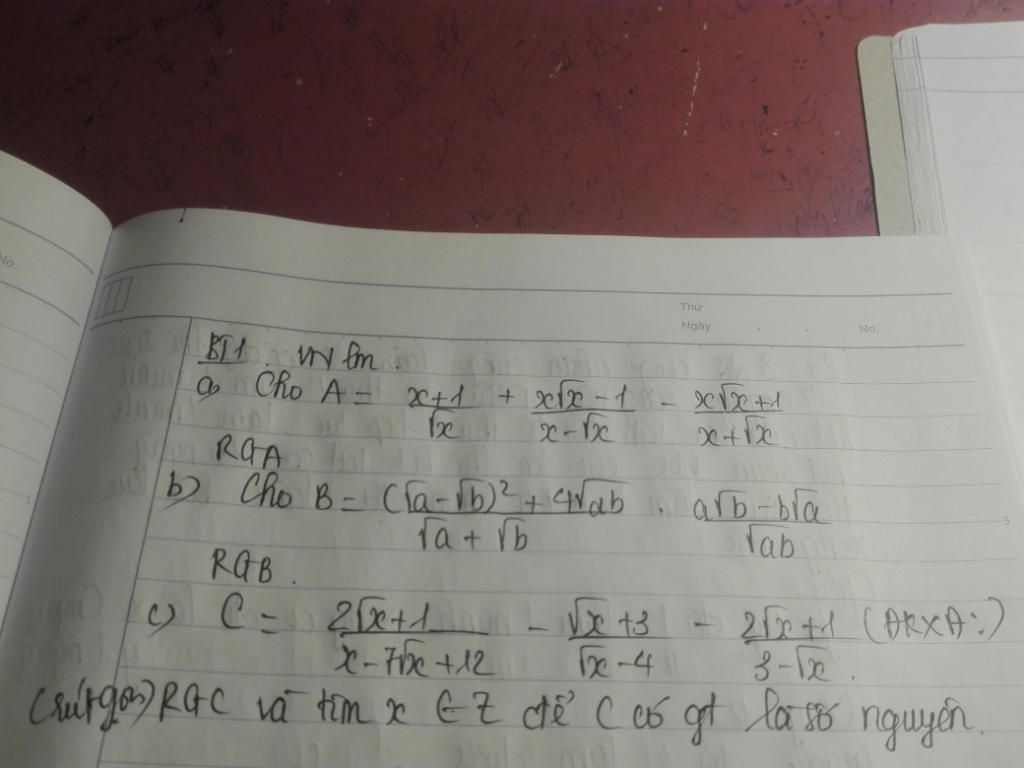 No.
Thứ
Ngày . . No.
BT1.
a) Cho A = \frac{x+1}{\sqrt{x}} + \frac{x\sqrt{x}-1}{x-\sqrt{x}} - \frac{x\sqrt{x}+1}{x+\sqrt{x}}
RGA.
b) Cho B = \frac{(\sqrt{a}-\sqrt{b})^2+4\sqrt{ab}}{\sqrt{a}+\sqrt{b}} . \frac{a\sqrt{b}-b\sqrt{a}}{\sqrt{ab}}
5
RGB.
c) C = \frac{2\sqrt{x}+1}{x-7\sqrt{x}+12} - \frac{\sqrt{x}+3}{\sqrt{x}-4} - \frac{2\sqrt{x}+1}{3-\sqrt{x}}. (ĐKXĐ:)
(rút gọn) RGC và tìm x ∈ Z để C có gt là số nguyên.